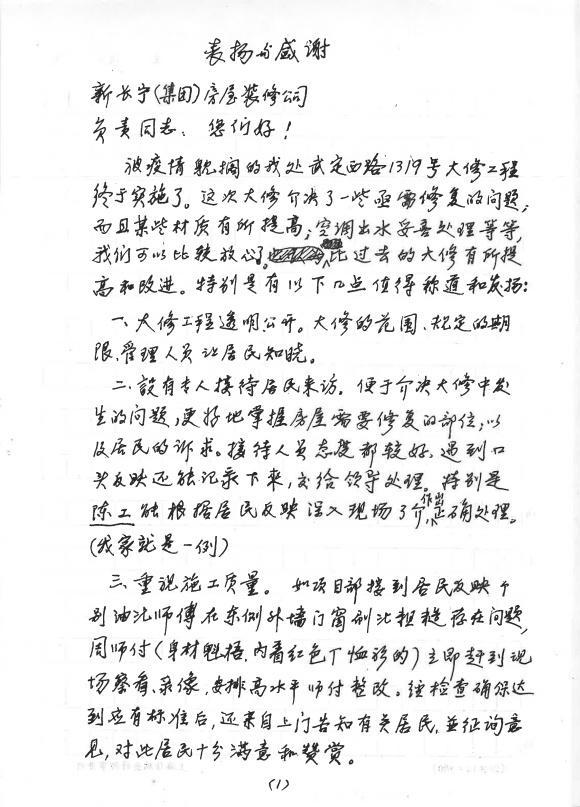 表扬与感谢
新长宁(集团)房屋装修公司
负责同志：您们好！
被疫情耽搁的我处武定西路1319号大修工程
终于实施了。这次大修介决了一些亟需修复的问题，
而且某些材质有所提高，空调出水妥善处理等等，
我们可以比较放心了。比过去的大修有所提
高和改进。特别是有以下几点值得称道和发扬：
一、大修工程透明公开。大修的范围、规定的期
限、管理人员让居民知晓。
二、设有专人接待居民来访。便于介决大修中发
生的问题，更好地掌握房屋需要修复的部位，以
及居民的诉求。接待人员态度都较好，遇到口
头反映还能记录下来，交给领导处理。特别是
陈工能根据居民反映深入现场了介，作出正确处理。
(我家就是一例)
三、重视施工质量。如项目部接到居民反映个
别油漆师傅在东侧外墙门窗刷漆粗糙存在问题，
周师付(身材魁梧，内着红色T恤衫的)立即赶到现
场察看、录像，安排高水平师付整改。经检查确保达
到应有标准后，还亲自上门告知有关居民，并征询意
见，对此居民十分满意和赞赏。
(1)